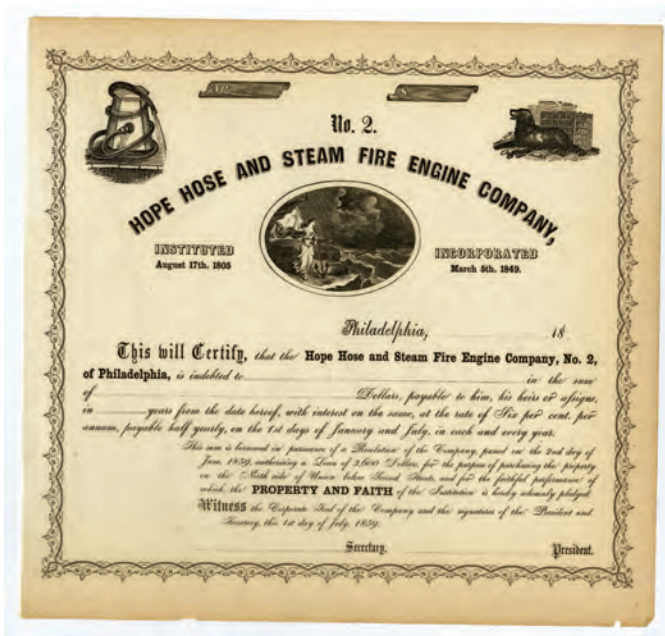 No.
$
No. 2.
HOPE HOSE AND STEAM FIRE ENGINE COMPANY,
INSTITUTED
August 17th. 1805
INCORPORATED
March 5th. 1849.
Philadelphia, 18
This will Certify, that the Hope Hose and Steam Fire Engine Company, No. 2,
of Philadelphia, is indebted to in the sum
of Dollars, payable to him, his heirs or assigns,
in years from the date hereof, with interest on the same, at the rate of Six per cent. per
annum, payable half yearly, on the 1st days of January and July, in each and every year.
This sum is borrowed in pursuance of a Resolution of the Company, passed on the 2nd day of
June, 1859, authorising a Loan of 3,600 Dollars, for the purpose of purchasing the property
on the North side of Union below Second Streets, and for the faithful performance of
which, the PROPERTY AND FAITH of the Institution is hereby solemnly pledged.
Witness the Corporate Seal of the Company and the signatures of the President and
Secretary, this 1st day of July, 1859.
Secretary. President.